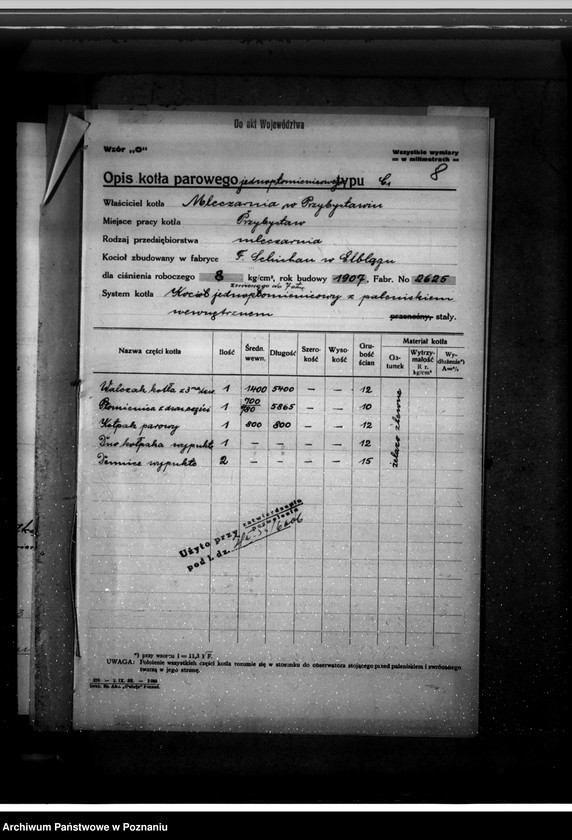 Do akt Województwa
Wzór „O"
Wszystkie wymiary
w milimetrach
8
Opis kotła parowego jednopłomienicowego typu C,
Właściciel kotła Mleczarnia w Przybysławiu
Miejsce pracy kotła Przybysław
Rodzaj przedsiębiorstwa mleczarnia
Kocioł zbudowany w fabryce F. Schichau w Elblągu
dla ciśnienia roboczego 8 kg/cm², rok budowy 1907, Fabr. No 2625
zmienionego do 7 atm.
System kotła Kocioł jednopłomienicowy z paleniskiem
wewnętrznem przenośny, stały.
Nazwa części kotła Ilość Średn. wewn. Długość Szerokość Wysokość Grubość ścian Materiał kotła
Gatunek Wytrzymałość R r. kg/cm² Wydłużenie*) A=%
Walczak kotła z 3 1 1400 5400 — — 12
Płomienica z 1 700 780 5865 — — 10
Kołpak parowy 1 800 800 — — 12
Dno kołpaka wypukłe 1 — — — — 12
Dennice wypukłe 2 — — — — 15
żelazo zlewne
Użyto przy zatwierdzeniu
pozwolenia
pod l. dz.
*) przy wzorcu l = 11,3 √F.
UWAGA: Położenie wszystkich części kotła rozumie się w stosunku do obserwatora stojącego przed paleniskiem i zwróconego
twarzą w jego stronę.
Archiwum Państwowe w Poznaniu